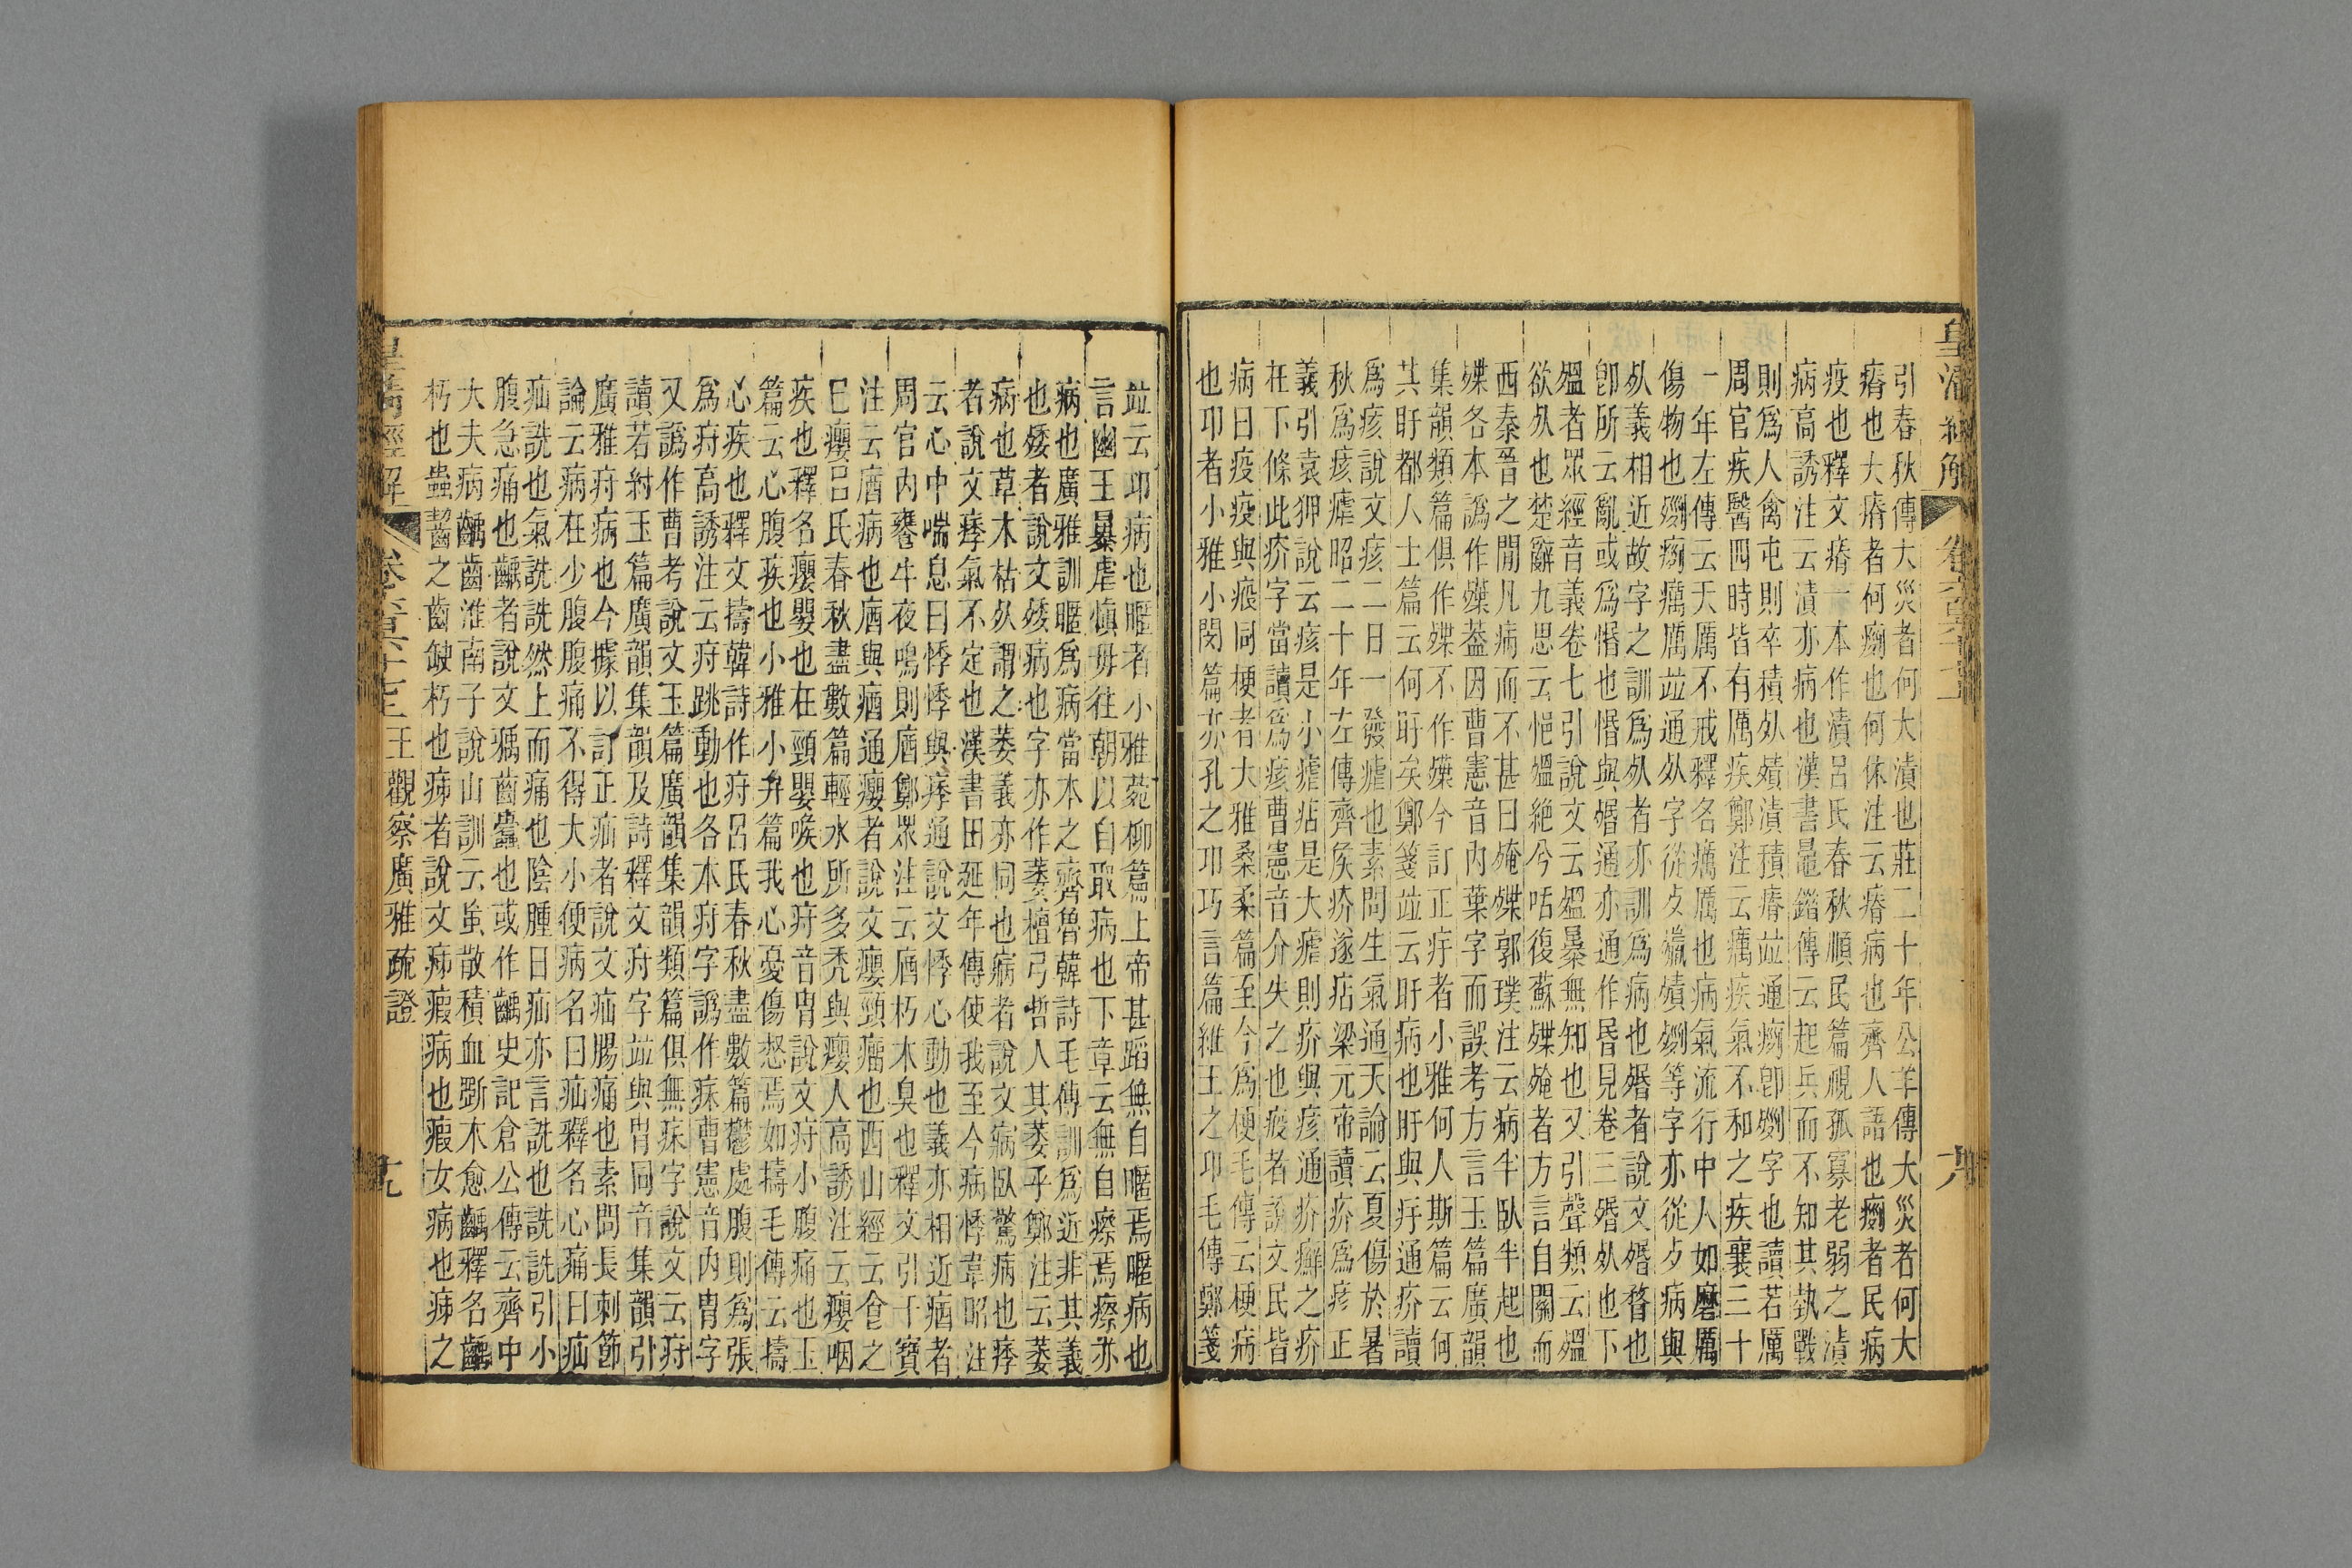 皇清經解
卷六百六十七
大
引春秋傳大災者何大漬也莊二十年公羊傳大災者何大
瘠也大瘠者何㾐也何休注云瘠病也齊人語也㾐者民病
疫也釋文瘠一本作漬呂氏春秋順民篇視孤寡老弱之漬
病高誘注云漬亦病也漢書鼂錯傳云起兵而不知其埶戰
則為人禽屯則卒積㱙殨漬積瘠竝通㾐卽㱹字也讀若厲
周官疾醫四時皆有厲疾鄭注云癘疾氣不和之疾襄三十
一年左傳云天厲不戒釋名癘厲也病氣流行中人如磨厲
傷物也㱹㾐癘厲竝通㱙字從歺殰㱹等字亦從歺病與
㱙義相近故字之訓為㱙者亦訓為病也殙者說文殙瞀也
卽所云亂或為惛也惛與殙通亦通作昬見卷三殙㱙也下
殟者眾經音義卷七引說文云殟暴無知也又引聲類云殟
欲㱙也楚辭九思云悒殟絕兮咶復蘇殜殗者方言自關而
西秦晉之閒凡病而不甚曰殗殜郭璞注云病半臥半起也
殜各本譌作殢葢因曹憲音內葉字而誤考方言玉篇廣韻
集韻類篇俱作殜不作殢今訂正疛者小雅何人斯篇云何
其盱都人士篇云何盱矣鄭箋竝云盱病也盱與疛通疥讀
為痎說文痎二日一發瘧也素問生氣通天論云夏傷於暑
秋為痎瘧昭二十年左傳齊侯疥遂痁梁元帝讀疥為痎正
義引袁狎說云痎是小瘧痁是大瘧則疥與痎通疥癬之疥
在下條此疥字當讀為痎曹憲音介失之也疲者說文民皆
病曰疫疫與癜同梗者大雅桑柔篇至今為梗毛傳云梗病
也卭者小雅小閔篇亦孔之卭巧言篇維王之卭毛傳鄭箋
竝云卭病也暱者小雅菀柳篇上帝甚蹈無自暱焉暱病也
言幽王暴虐慎毋往朝以自取病也下章云無自瘵焉瘵亦
病也廣雅訓暱為病當本之齊魯韓詩毛傳訓為近非其義
也矮者說文矮病也字亦作萎檀弓哲人其萎乎鄭注云萎
病也草木枯㱙謂之萎義亦同也㾕者說文㾕臥驚病也㾕
者說文痵氣不定也漢書田延年傳使我至今病悸韋昭注
云心中喘息曰悸悸與痵通說文悸心動也義亦相近㾞者
周官內饔牛夜鳴則庮鄭眾注云庮朽木臭也釋文引干寶
注云庮病也庮與㾞通癭者說文癭頸瘤也西山經云食之
已癭呂氏春秋盡數篇輕水所多禿與癭人高誘注云癭咽
疾也釋名癭嬰也在頸嬰喉也疛音胄說文疛小腹痛也玉
篇云心腹疾也小雅小弁篇我心憂傷惄焉如擣毛傳云擣
心疾也釋文擣韓詩作疛呂氏春秋盡數篇鬱處腹則為張
為疛高誘注云疛跳動也各本疛字譌作㾈曹憲音內胄字
又譌作曹考說文玉篇廣韻集韻類篇俱無㾈字說文云疛
讀若紂玉篇廣韻集韻及詩釋文疛字竝與胄同音集韻引
廣雅疛病也今據以訂正疝者說文疝腸痛也素問長刺節
論云病在少腹腹痛不得大小便病名曰疝釋名心痛曰疝
疝詵也氣詵詵然上而痛也陰腫曰疝亦言詵也詵詵引小
腹急痛也齲者說文㺄齒蠹也或作齲史記倉公傳云齊中
大夫病齲齒淮南子說山訓云䖟散積血斲木愈齲釋名齲
朽也蟲齧之齒缺朽也㾁者說文㾁瘕病也瘕女病也㾁之
皇清經解
王觀察廣雅疏證